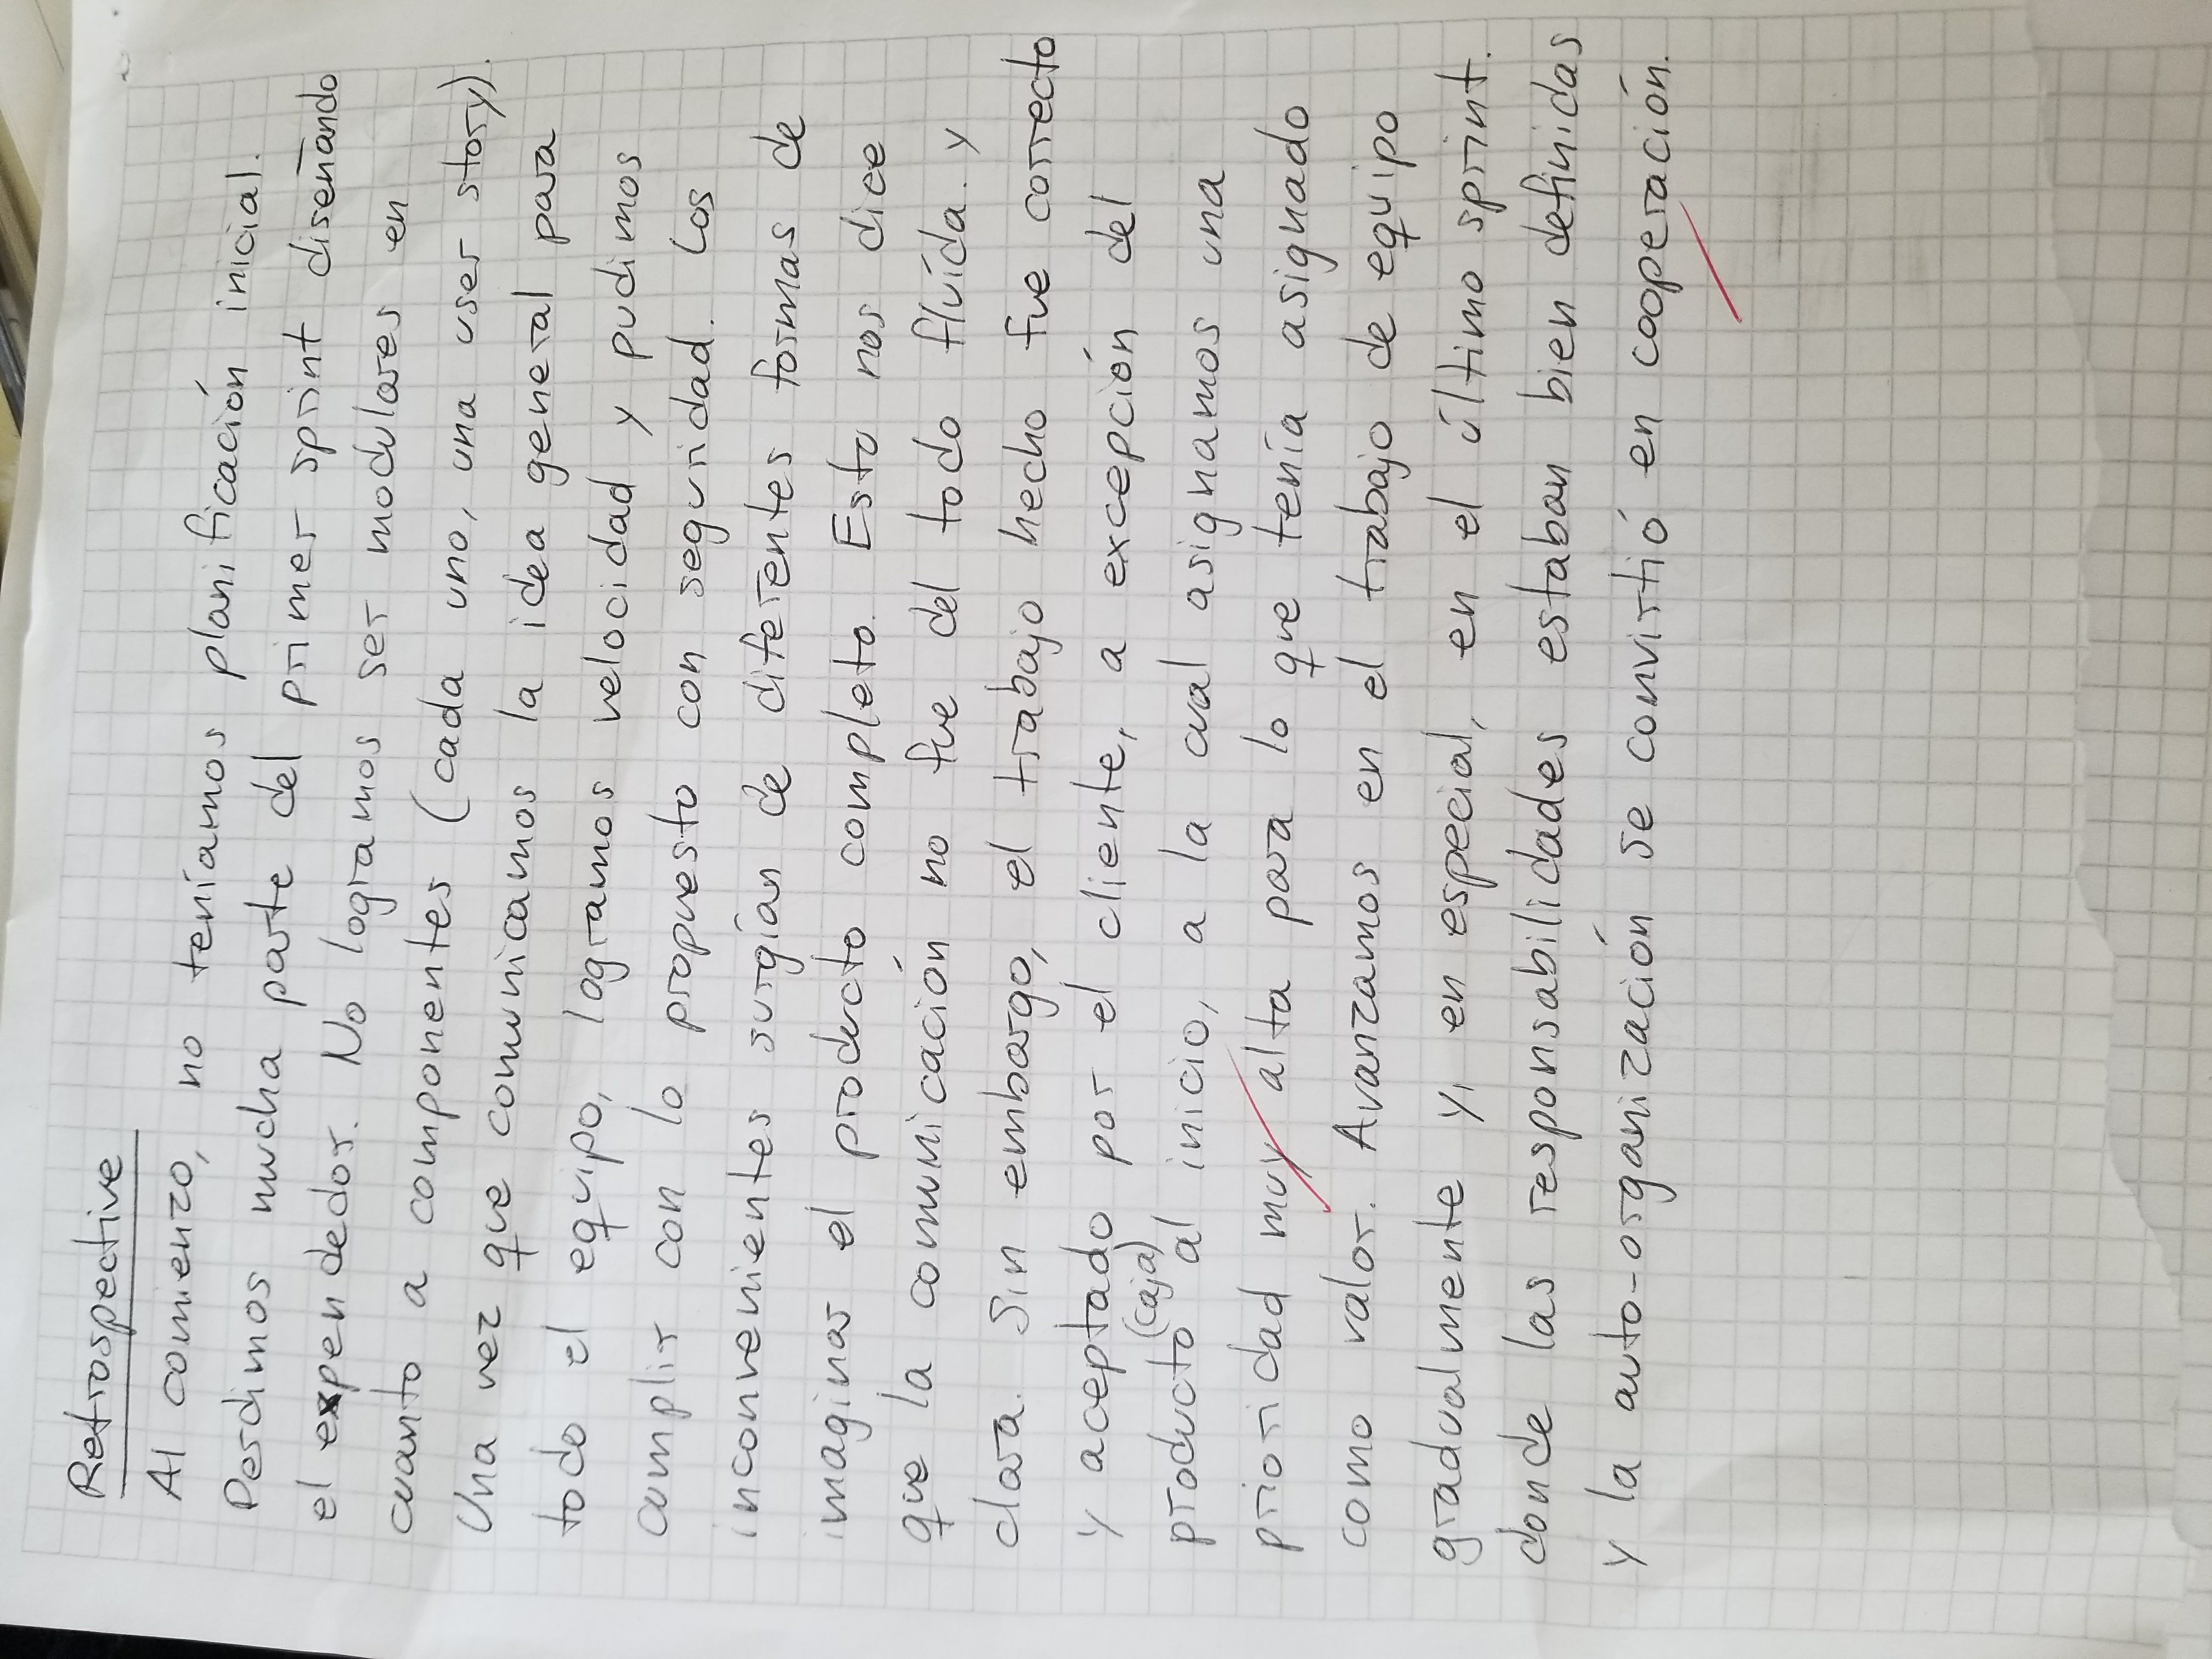 Retrospective
Al comienzo, no teníamos planificación inicial.
Perdimos mucha parte del primer sprint diseñando
el expendedor. No logramos ser modulares en
cuanto a componentes (cada uno, una user story).
Una vez que comunicamos la idea general para
todo el equipo, logramos velocidad y pudimos
cumplir con lo propuesto con seguridad. Los
inconvenientes surgían de diferentes formas de
imaginar el producto completo. Esto nos dice
que la comunicación no fue del todo fluída. y
clara. Sin embargo, el trabajo hecho fue correcto
y aceptado por el cliente, a excepción del
producto (caja) al inicio, a la cual asignamos una
prioridad muy alta para lo que tenía asignado
como valor. Avanzamos en el trabajo de equipo
gradualmente y, en especial, en el último sprint.
donde las responsabilidades estaban bien definidas
y la auto-organización se convirtió en cooperación.